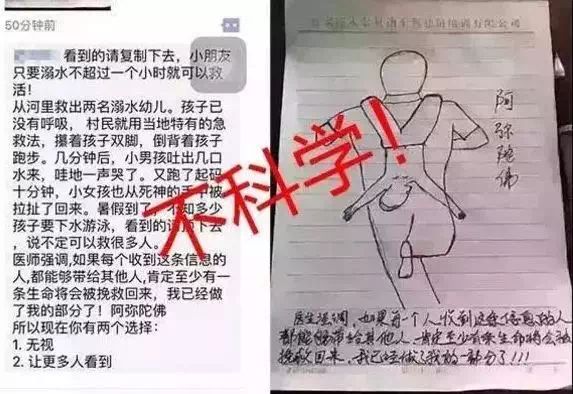 50分钟前
看到的请复制下去，小朋友
只要溺水不超过一个小时就可以救
活！
从河里救出两名溺水幼儿。孩子已
没有呼吸， 村民就用当地特有的急
救法，攥着孩子双脚，倒背着孩子
跑步。几分钟后，小男孩吐出几口
水来，哇地一声哭了。又跑了起码
十分钟，小女孩也从死神的手中被
拉扯了回来。暑假到了，不知多少
孩子要下水游泳，看到的请顶下去
，说不定可以救很多人。
医师强调,如果每个收到这条信息的
人,都能够带给其他人,肯定至少有一
条生命将会被挽救回来，我已经做
了我的部分了！阿弥陀佛
所以现在你有两个选择：
1. 无视
2. 让更多人看到
不科学！
阿弥陀佛
医生强调，如果每一个人收到这条信息的人
都能够带给其他人，肯定至少有一条生命将会被
挽救回来，我已经做了我的一部分了!!!